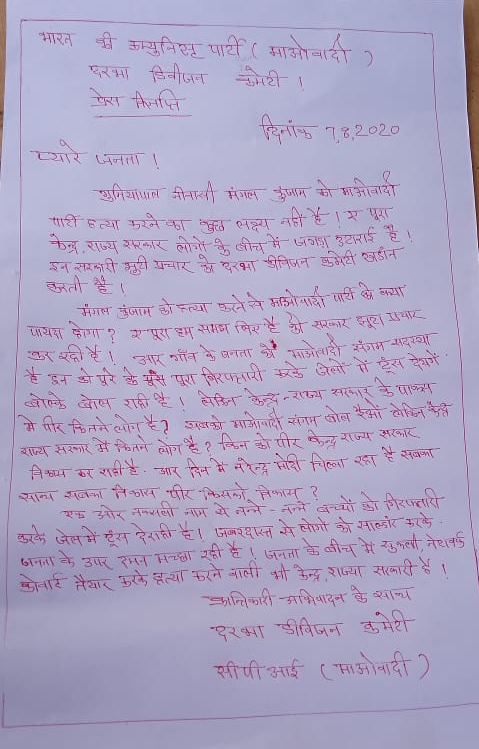 भारत की कम्युनिस्ट पार्टी ( माओवादी )
दरभा डिवीजन कमेटी !
प्रेस विज्ञप्ति
दिनांक 7,8,2020
प्यारे जनता !
मंगल कुंजाम को माओवादी
पार्टी हत्या करने का कुछ लक्ष्य नही है ! ए पूरा
केन्द्र, राज्य सरकार लोगों के बीच में है !
इन सरकारी झुटी प्रचार को दरभा डीविजन कमेटी खडीन
करती है !
मंगल कुंजाम को हत्या करने से माओवादी पार्टी को क्या
पायदा होगा ? ए पूरा हम समझ लिए है की सरकार झूटा प्रचार
कर रही है ! आर गाँव के जनता को माओवादी संगम सदस्या
है इन को पूरे के पूरा गिरफ्तारी करके जेलों में टूंस देयेंगे
बोलके बोल राही है ! लेकिन केन्द्र - राज्य सरकार के
में पीर कितने लोग है ? सबको माओवादी संगम बोल लेकिन केन्द्र
राज्य सरकार में कितने लोग है ? किन को पीर केन्द्र राज्य सरकार
विकास कर राही है . आर दिन में नरेन्द्र मोदी चिल्ला रहा है सबका
साथ सबका विकास पीर किसको विकास ?
एक ओर नक्सली नाम से नन्ने - नन्ने बच्चों को गिरफ्तारी
करके जेल में टूंस देराही है ! जबरदास्त से लोगों को सालेंडर करके
जनता के उपर दमन मच्छा रही है ! जनता के बीच में
कोवार्ट तैयार करके हत्या करने वाली भी केन्द्र, राज्या सरकारी है !
क्रान्तिकारी अभिवादन के साथ
दरभा डीविजन कमेटी
सीपीआई ( माओवादी )